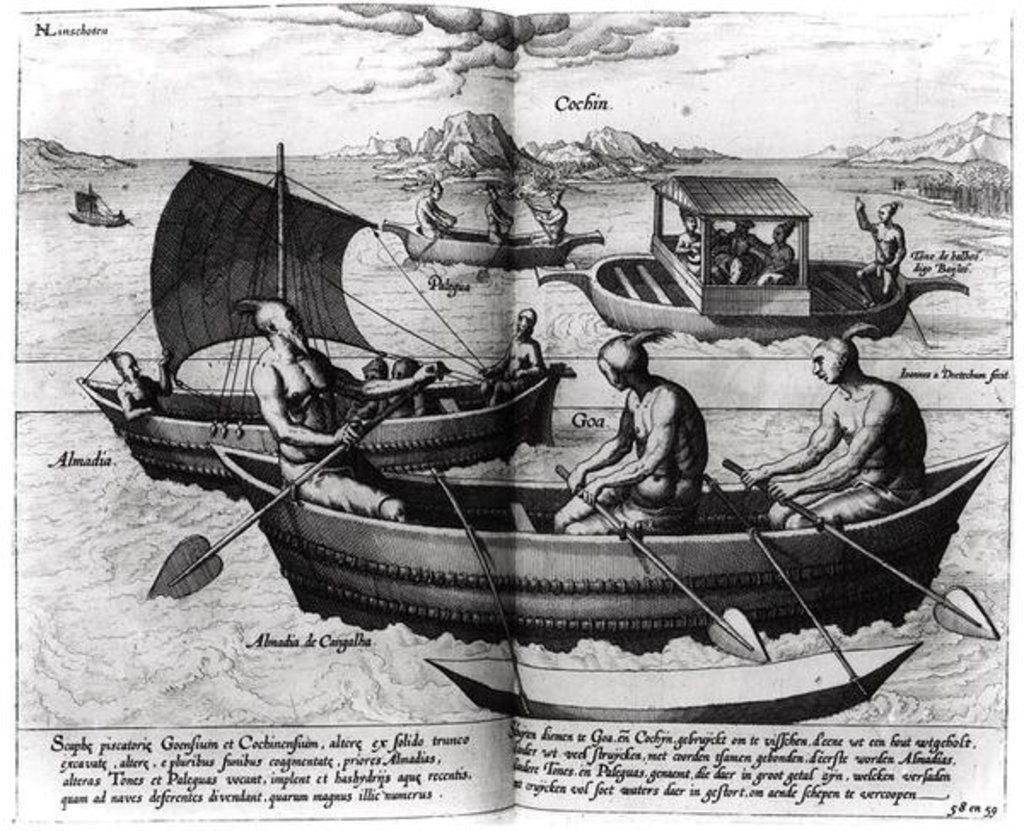 Linschoten
Cochin.
Palegua
Tone de
digo
Ioannes a Doetechum fecit.
Goa
Almadia.
Almadia de Cangalha
Scaphę piscatorię Goensium et Cochinensium, alterę ex solido trunco
excavatę, alterę, e pluribus funibus coagmentatę, priores Almadias,
alteras Tones et Paleguas vocant, implent et hashydrijs aquę recentis,
quam ad naves deferentes divendant, quarum magnus illic numerus.
dienen te Goa, eñ Cochyn, gebruyckt om te visschen, d'eene wt een hout wtgeholt,
ander wt veel struycken, met coorden tsamen gebonden, d'eerste worden Almadias,
andere Tones, en Paleguas, genaemt, die daer in groot getal zijn, welcken versaden
cruycken vol soet waters daer in gestort, om aende schepen te vercoopen
58 en 59